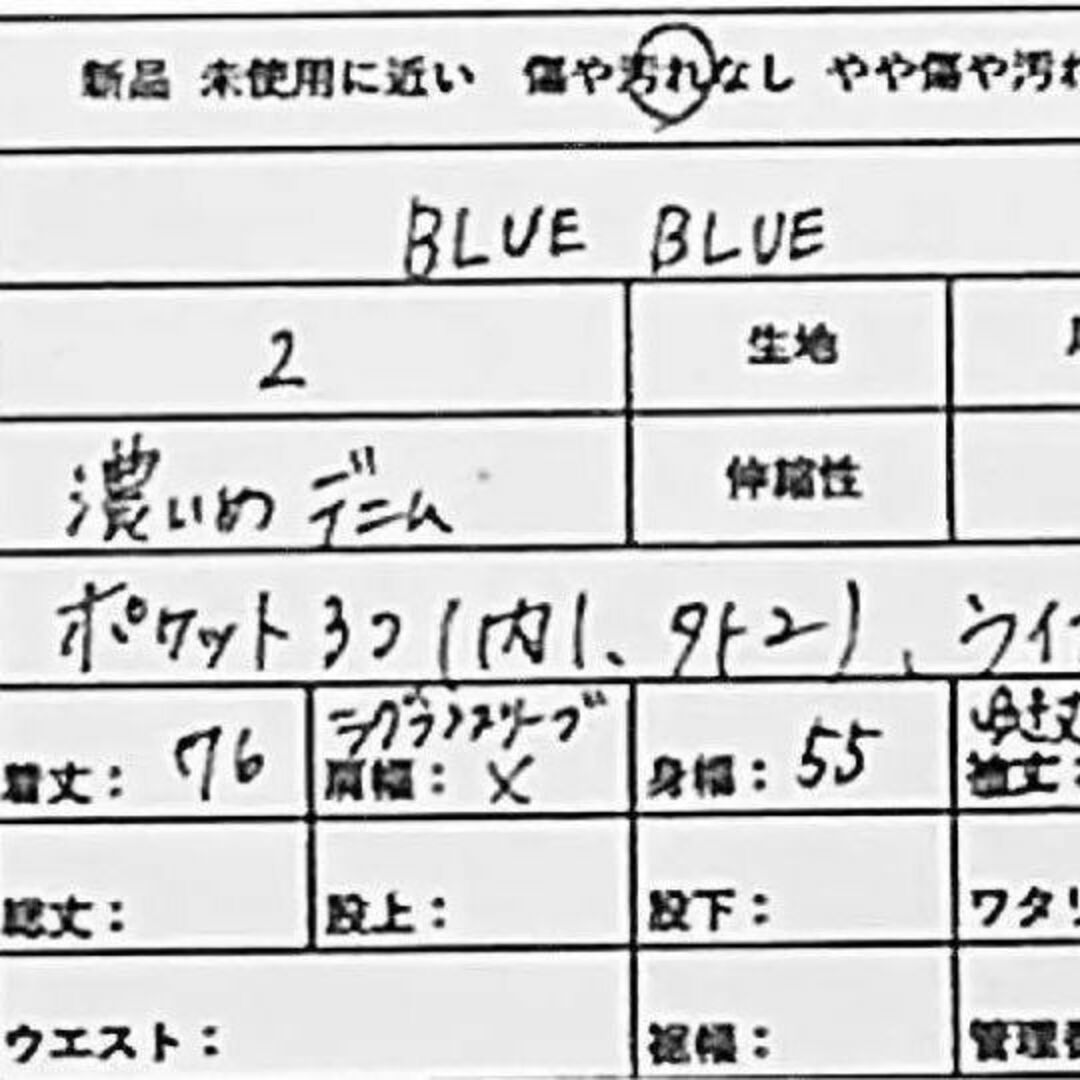 新品 未使用に近い 傷や汚れなし やや傷や汚れ
BLUE BLUE
2 生地
濃いめ デニム 伸縮性
ポケット3つ(内1、外2)、ライ
ラグランスリーブ
着丈: 76 肩幅: × 身幅: 55 袖丈:
総丈: 股上: 股下: ワタリ
ウエスト: 裾幅: 管理番